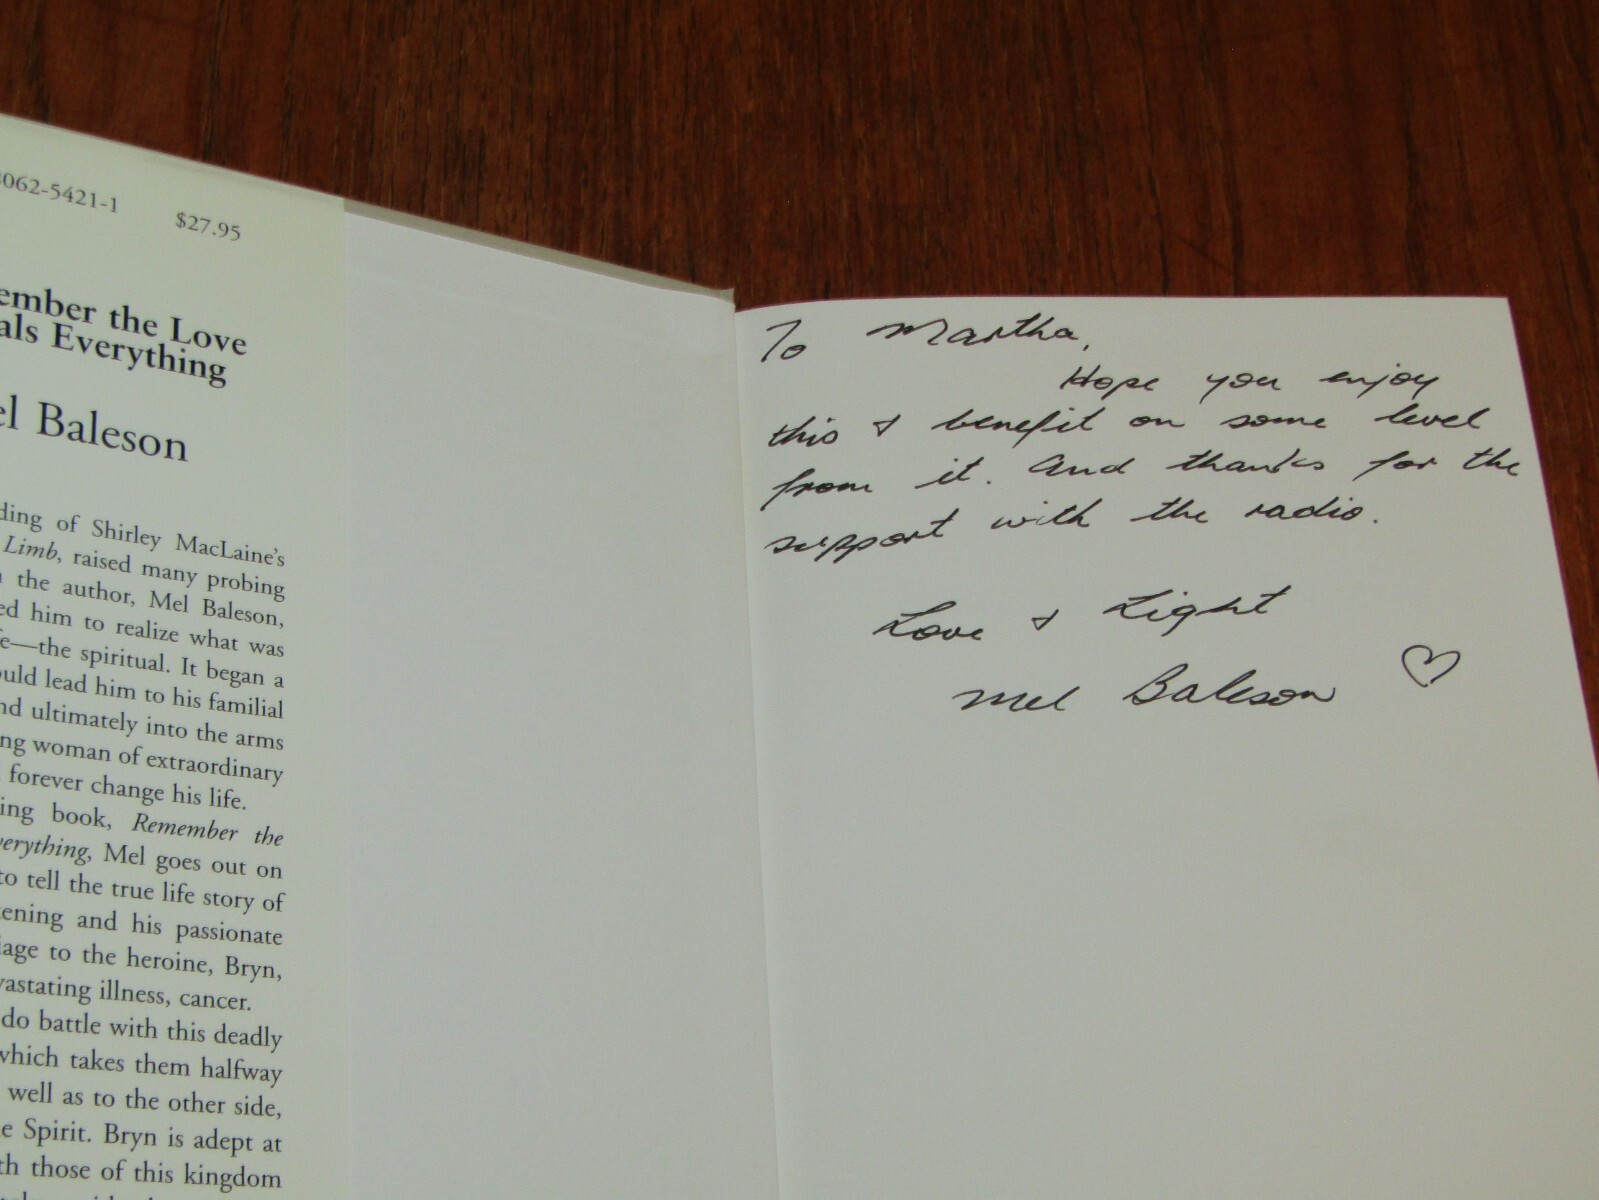 062-5421-1 $27.95
ember the Love
als Everything
el Baleson
ding of Shirley MacLaine's
Limb, raised many probing
the author, Mel Baleson,
ed him to realize what was
fe—the spiritual. It began a
ould lead him to his familial
nd ultimately into the arms
ng woman of extraordinary
forever change his life.
ing book, Remember the
verything, Mel goes out on
to tell the true life story of
kening and his passionate
iage to the heroine, Bryn,
vastating illness, cancer.
do battle with this deadly
which takes them halfway
well as to the other side,
e Spirit. Bryn is adept at
th those of this kingdom
To Martha,
Hope you enjoy
this & benefit on some level
from it. And thanks for the
support with the radio.
Love & Light
Mel Baleson ♡